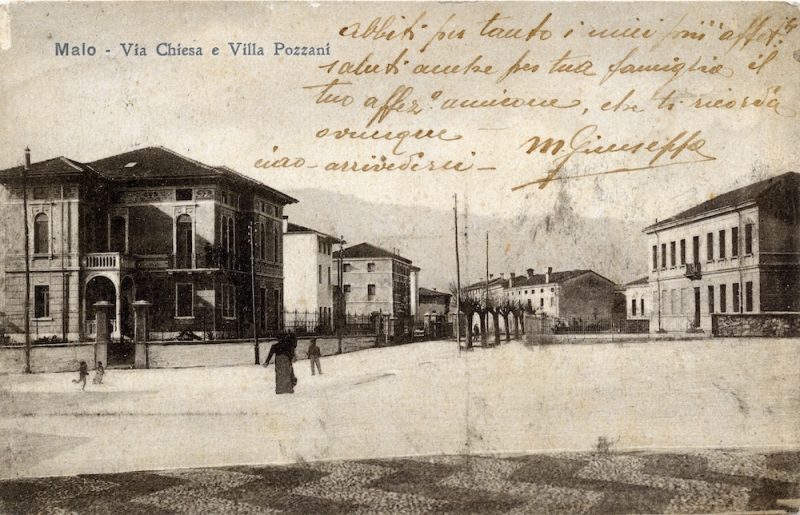 Malo - Via Chiesa e Villa Pozzani
Abbiti per tanto i miei più affett.
saluti anche per tua famiglia il
tuo affez.o amicone, che ti ricorda
ovunque
ciao - arrivederci -
M. Giuseppe